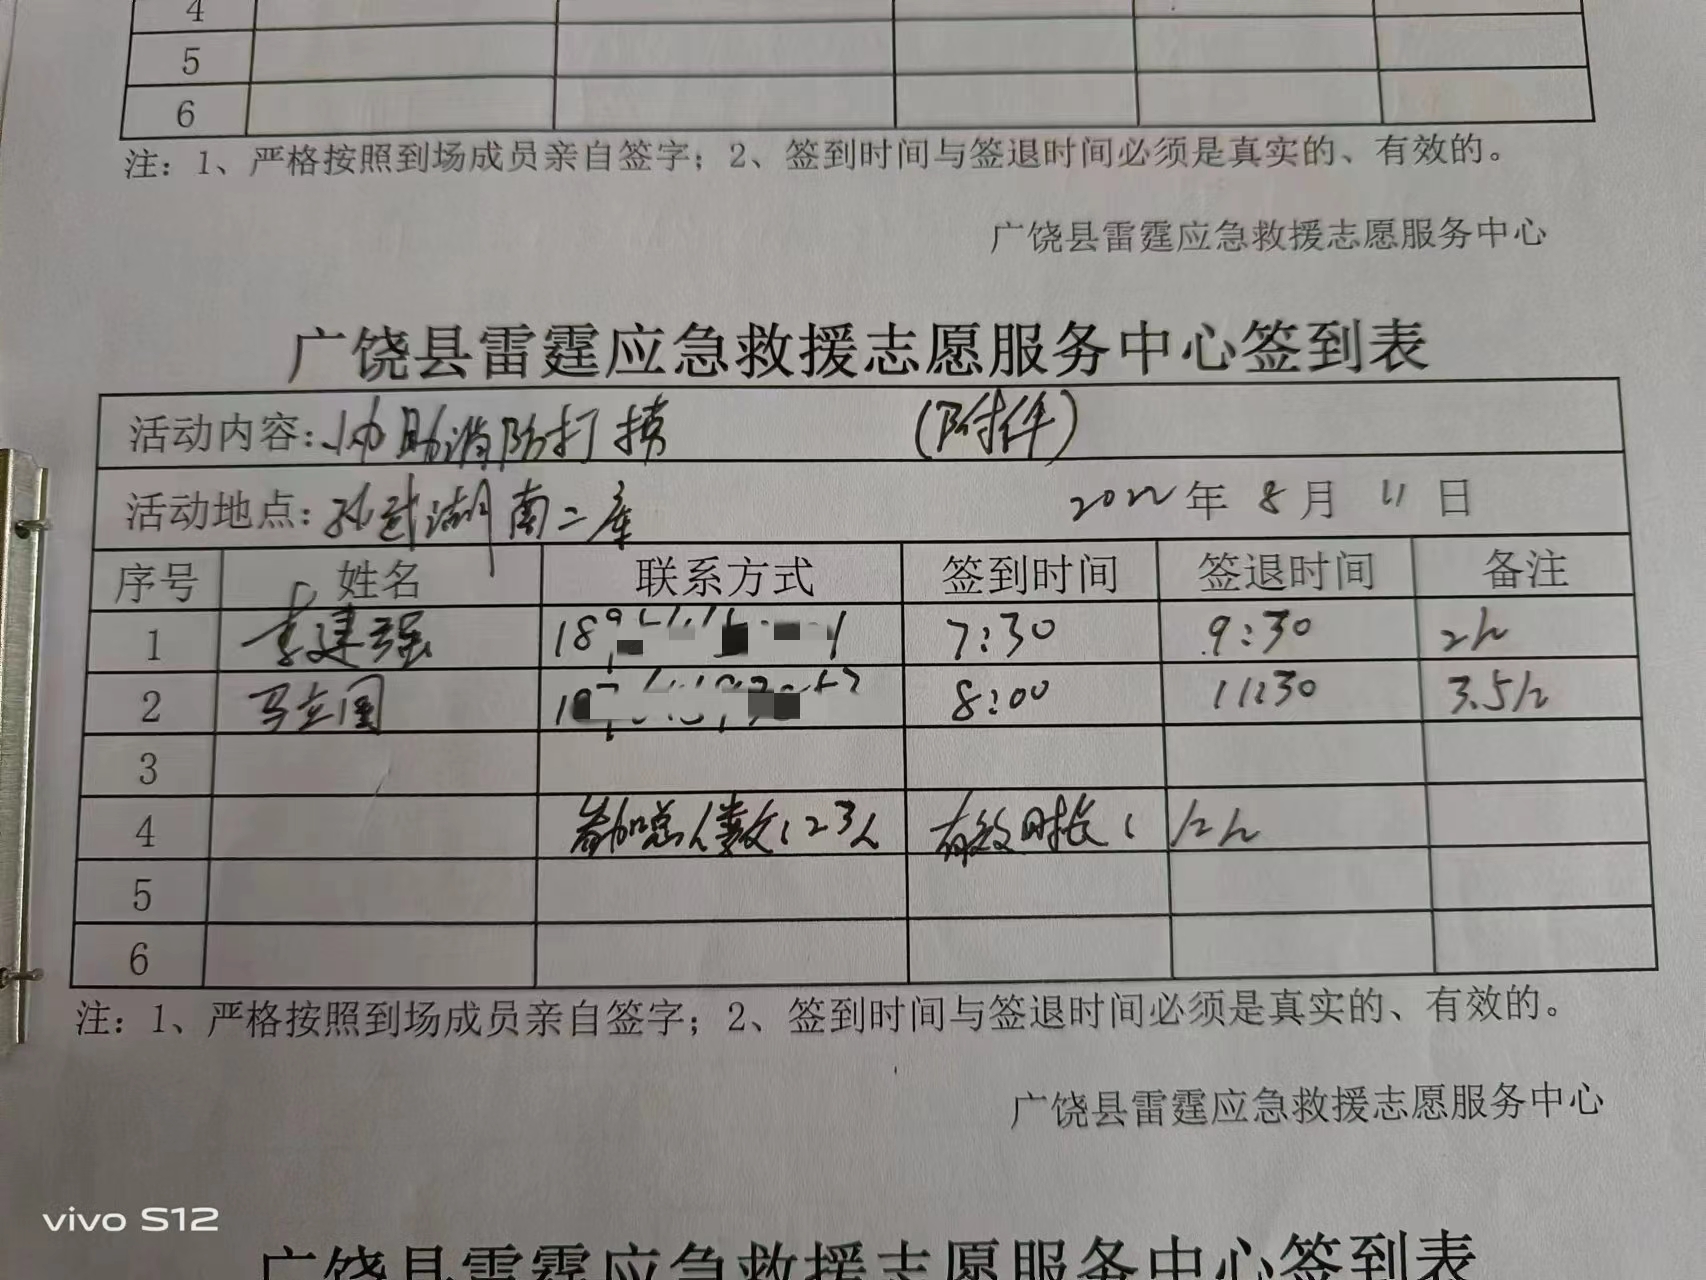 4
5
6
注：1、严格按照到场成员亲自签字；2、签到时间与签退时间必须是真实的、有效的。
广饶县雷霆应急救援志愿服务中心
广饶县雷霆应急救援志愿服务中心签到表
活动内容：协助消防打捞 （附件）
活动地点：孙武湖南二库 2022年8月11日
序号 姓名 联系方式 签到时间 签退时间 备注
1 李建强 189 1 7:30 9:30 2h
2 马立国 8:00 11:30 3.5h
3
4 参加总人数：23人 有效时长： 12h
5
6
注：1、严格按照到场成员亲自签字；2、签到时间与签退时间必须是真实的、有效的。
广饶县雷霆应急救援志愿服务中心
vivo S12
广饶县雷霆应急救援志愿服务中心签到表